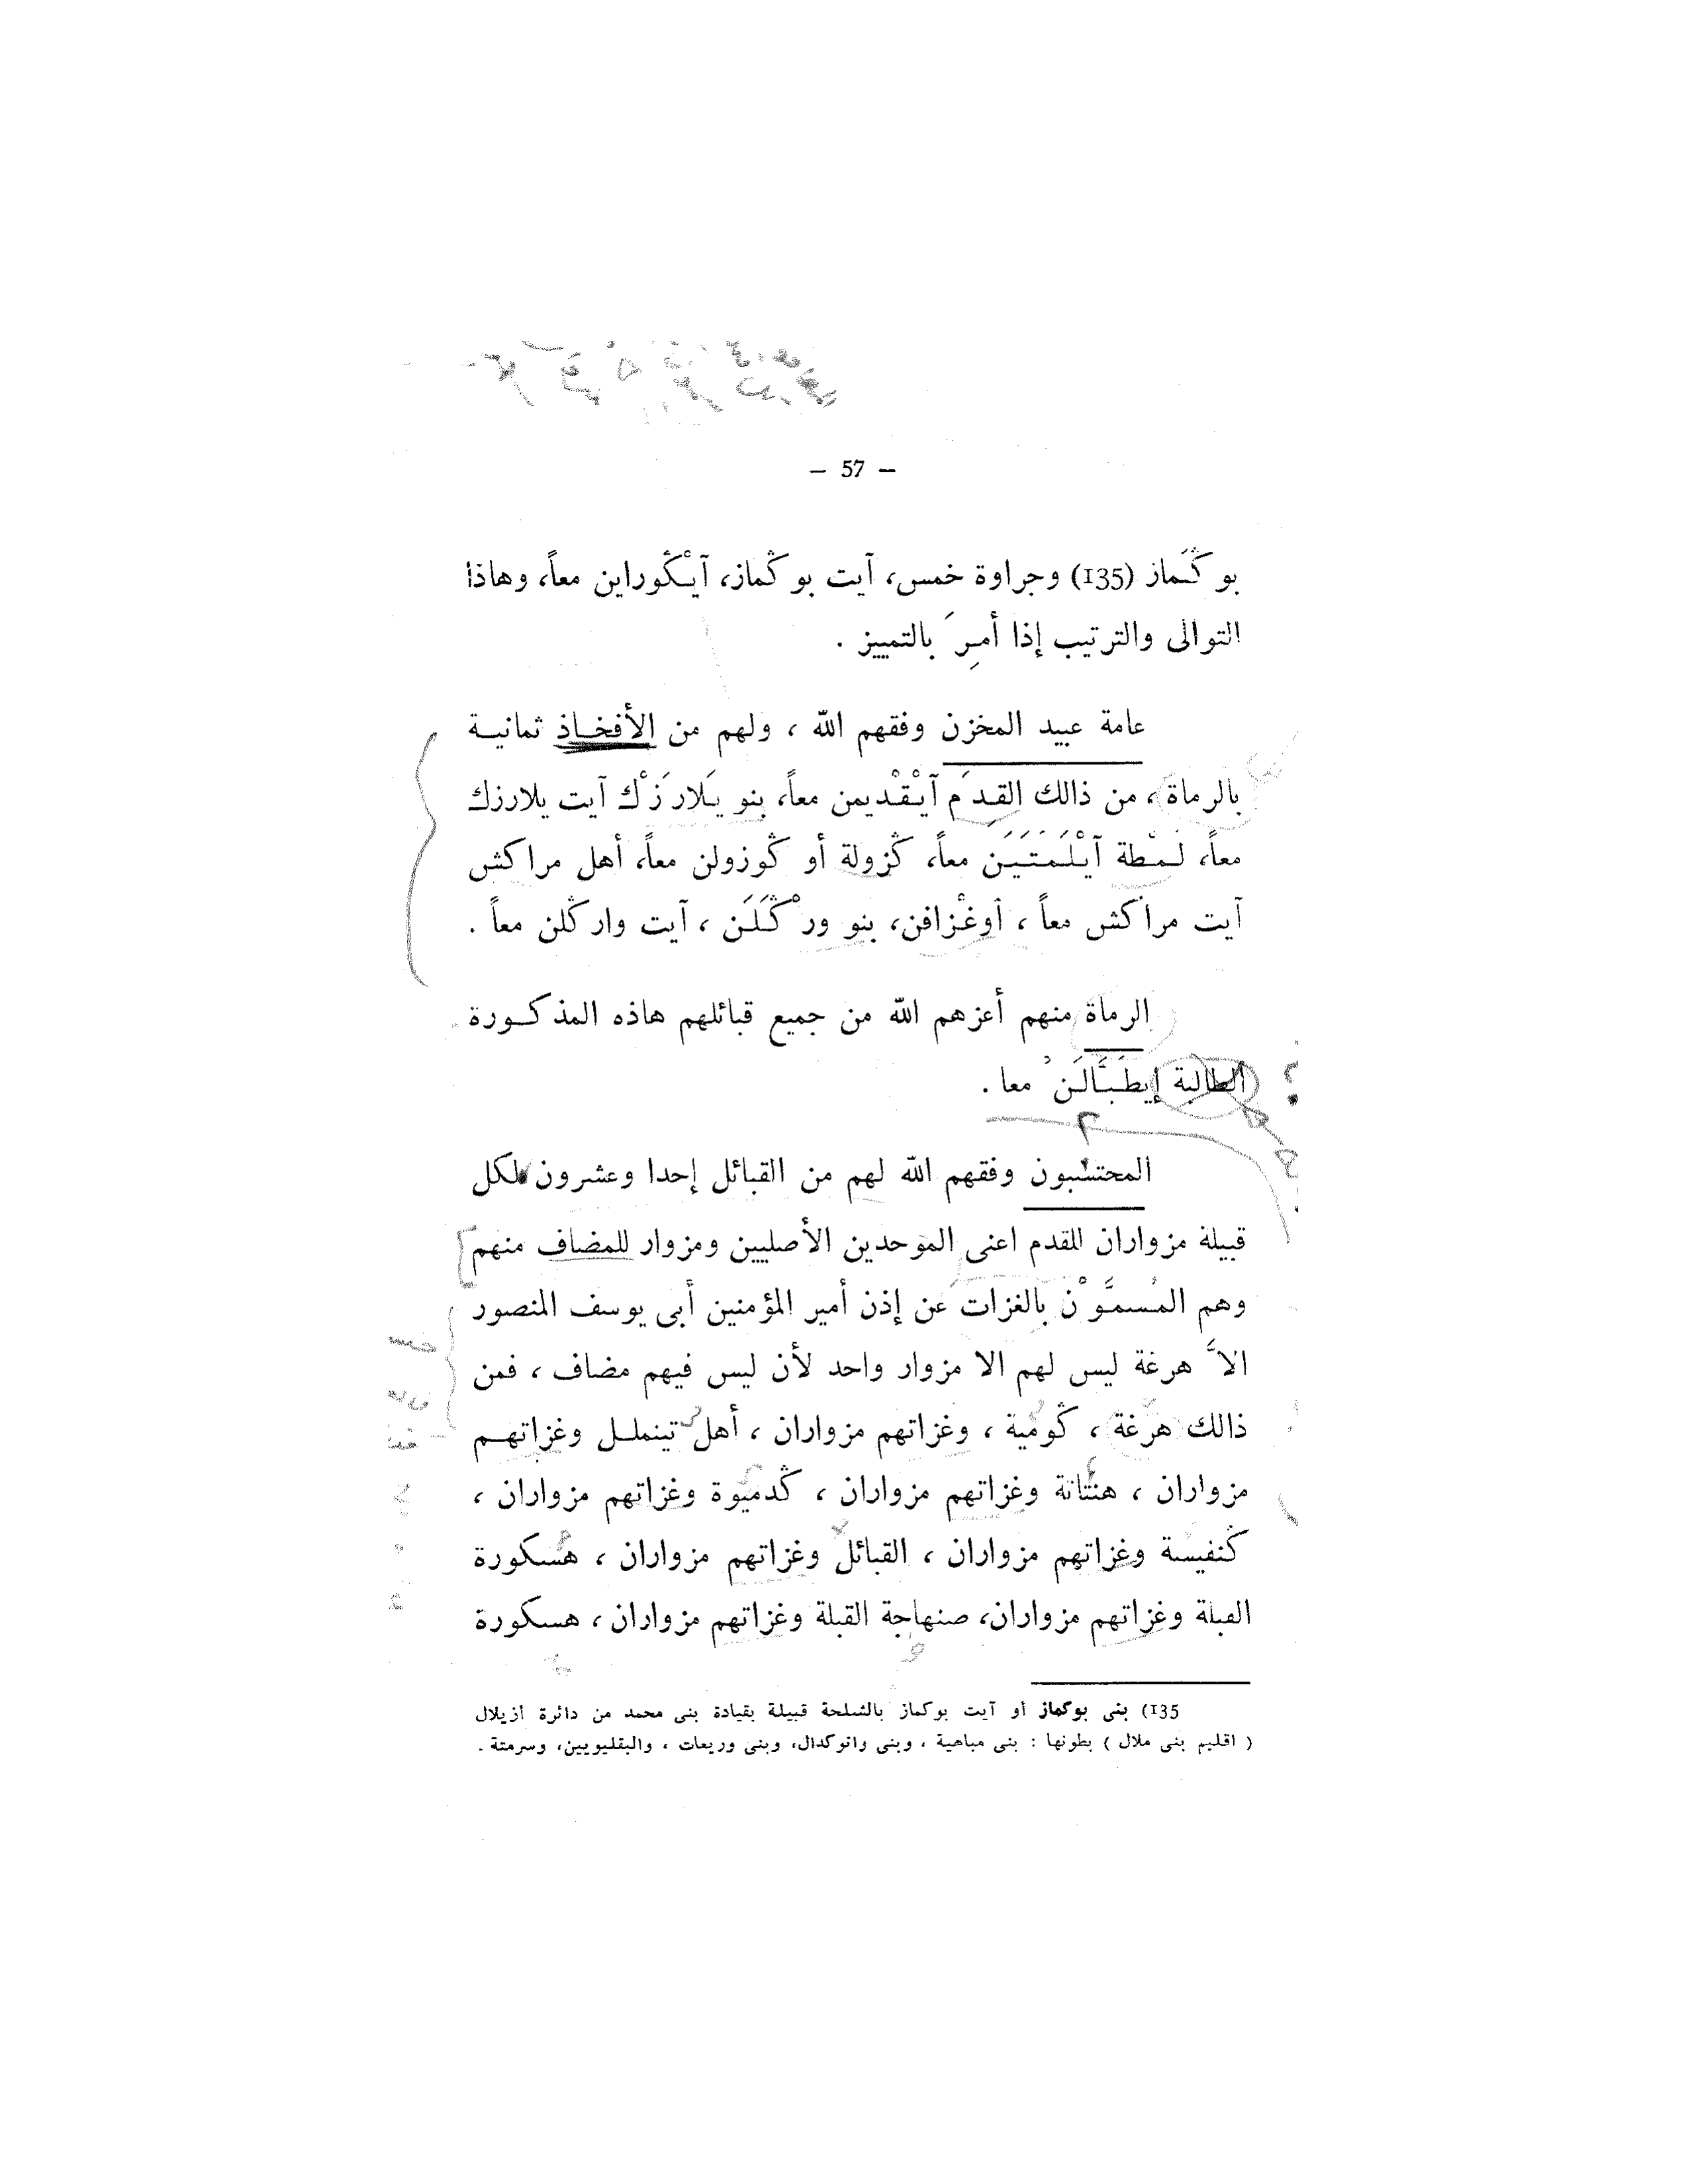 — 57 —
بو ڭـماز (135) وجراوة خمس، آيت بو ڭماز، آيـْڭوراين معاً، وهاذا
التوالى والترتيب إذا أمِرَ بالتمييز .
عامة عبيد المخزن وفقهم الله ، ولهم من الأفخـاذ ثمانيـة
بالرماة ، من ذالك القـدَم آيـْقـْديمن معاً، بنو يـَلارَزْك آيت يلارزك
معاً، لـمـْطة آيـْلـَمـتـيـَن معاً، ڭزولة أو ڭوزولن معاً، أهل مراكش
آيت مراكش معاً ، أوغـْزافن، بنو ورْڭـَلـَن ، آيت وارڭلن معاً .
الرماة منهم أعزهم الله من جميع قبائلهم هاذه المذكـورة
الطالبة إيطـَبـَّالـَن معا .
المحتسبون وفقهم الله لهم من القبائل إحدا وعشرون لكل
قبيلة مزواران للمقدم اعنى الموحدين الأصليين ومزوار للمضاف منهم
وهم المـُسمـَّوْن بالغزات عن إذن أمير المؤمنين أبى يوسف المنصور
الاَّ هرغة ليس لهم الا مزوار واحد لأن ليس فيهم مضاف ، فمن
ذالك هرغة ، ڭومية ، وغزاتهم مزواران ، أهل تينملـل وغزاتهـم
مزواران ، هنتاتة وغزاتهم مزواران ، ڭدميوة وغزاتهم مزواران ،
ڭنفيسة وغزاتهم مزواران ، القبائل وغزاتهم مزواران ، هسكورة
القبلة وغزاتهم مزواران، صنهاجة القبلة وغزاتهم مزواران ، هسكورة
135) بنى بوكماز أو آيت بوكماز بالشلحة قبيلة بقيادة بنى محمد من دائرة ازيلال
( اقليم بنى ملال ) بطونها : بنى مباهية ، وبنى وانوكدال، وبنى وريعات ، والبقليويين، وسرمتة .